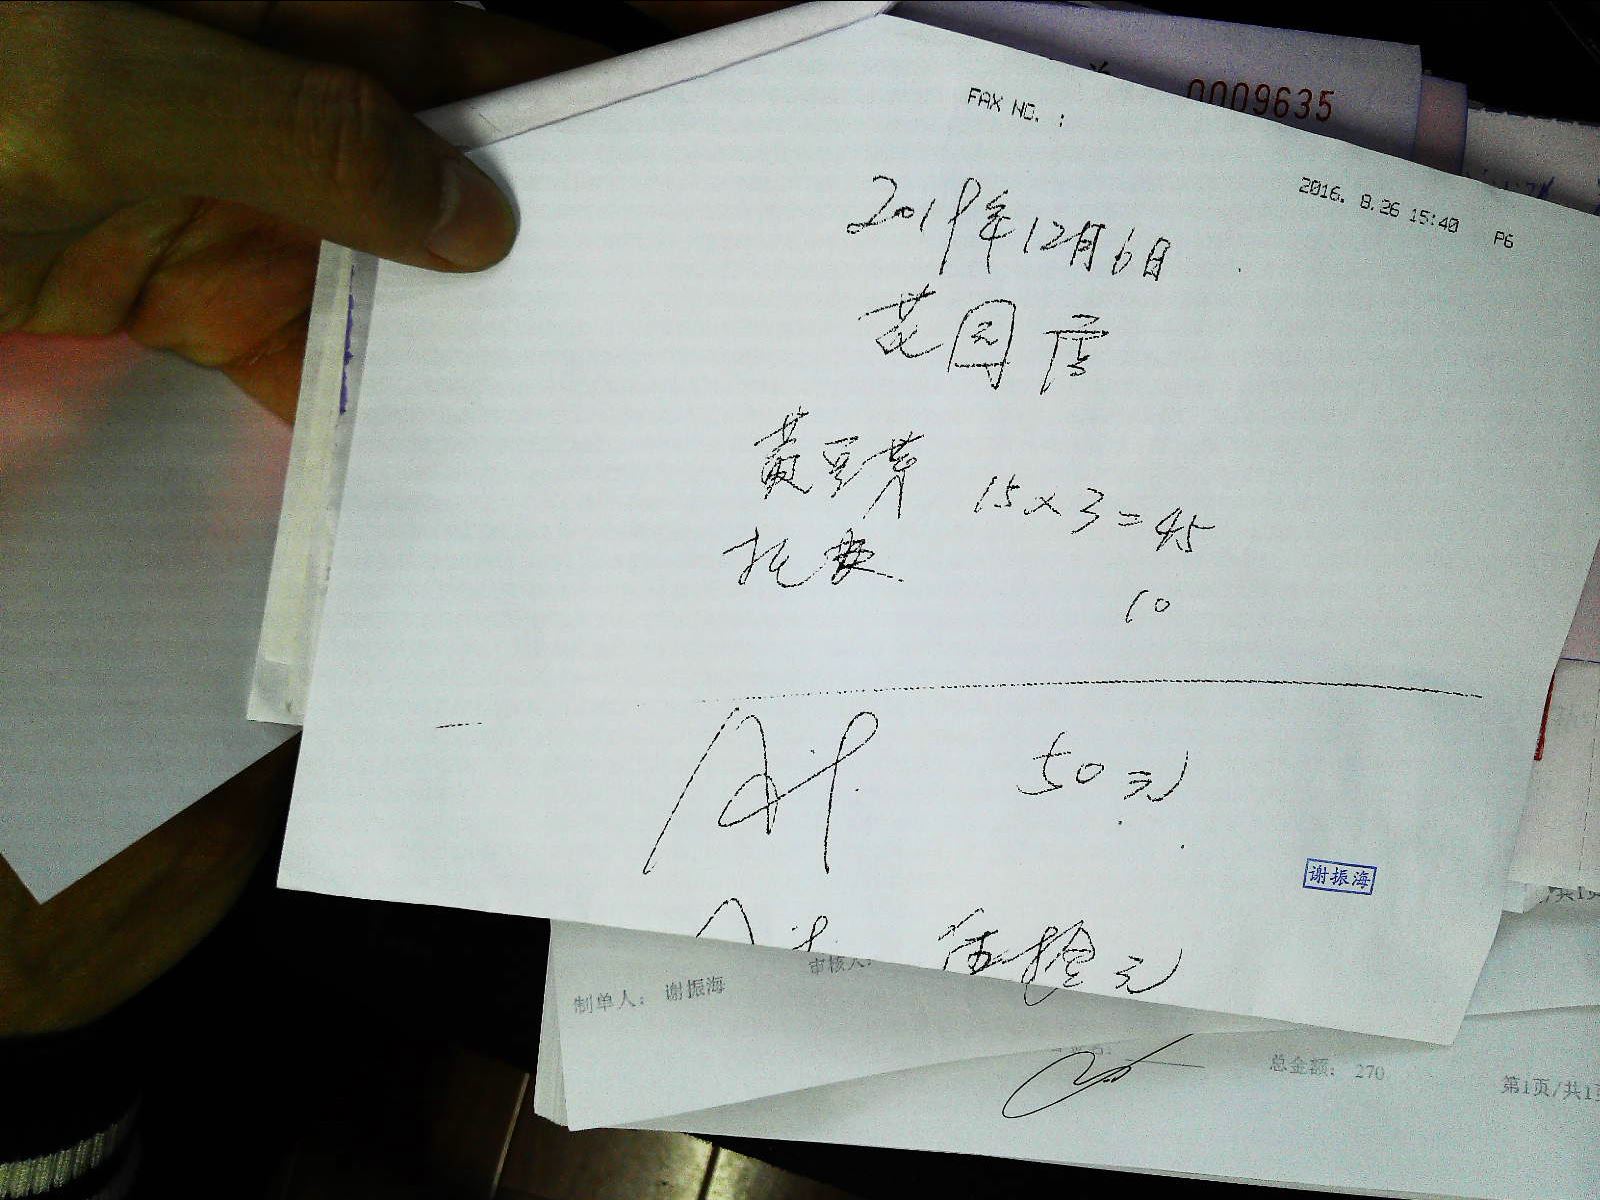 0009635
FAX NO. :
2016. 8.26 15:40 P6
2019年12月6日
花园店
黄豆芽 15×3=45
10
50元
谢振海
伍拾元
审核人:
制单人: 谢振海
总金额: 270
第1页/共1